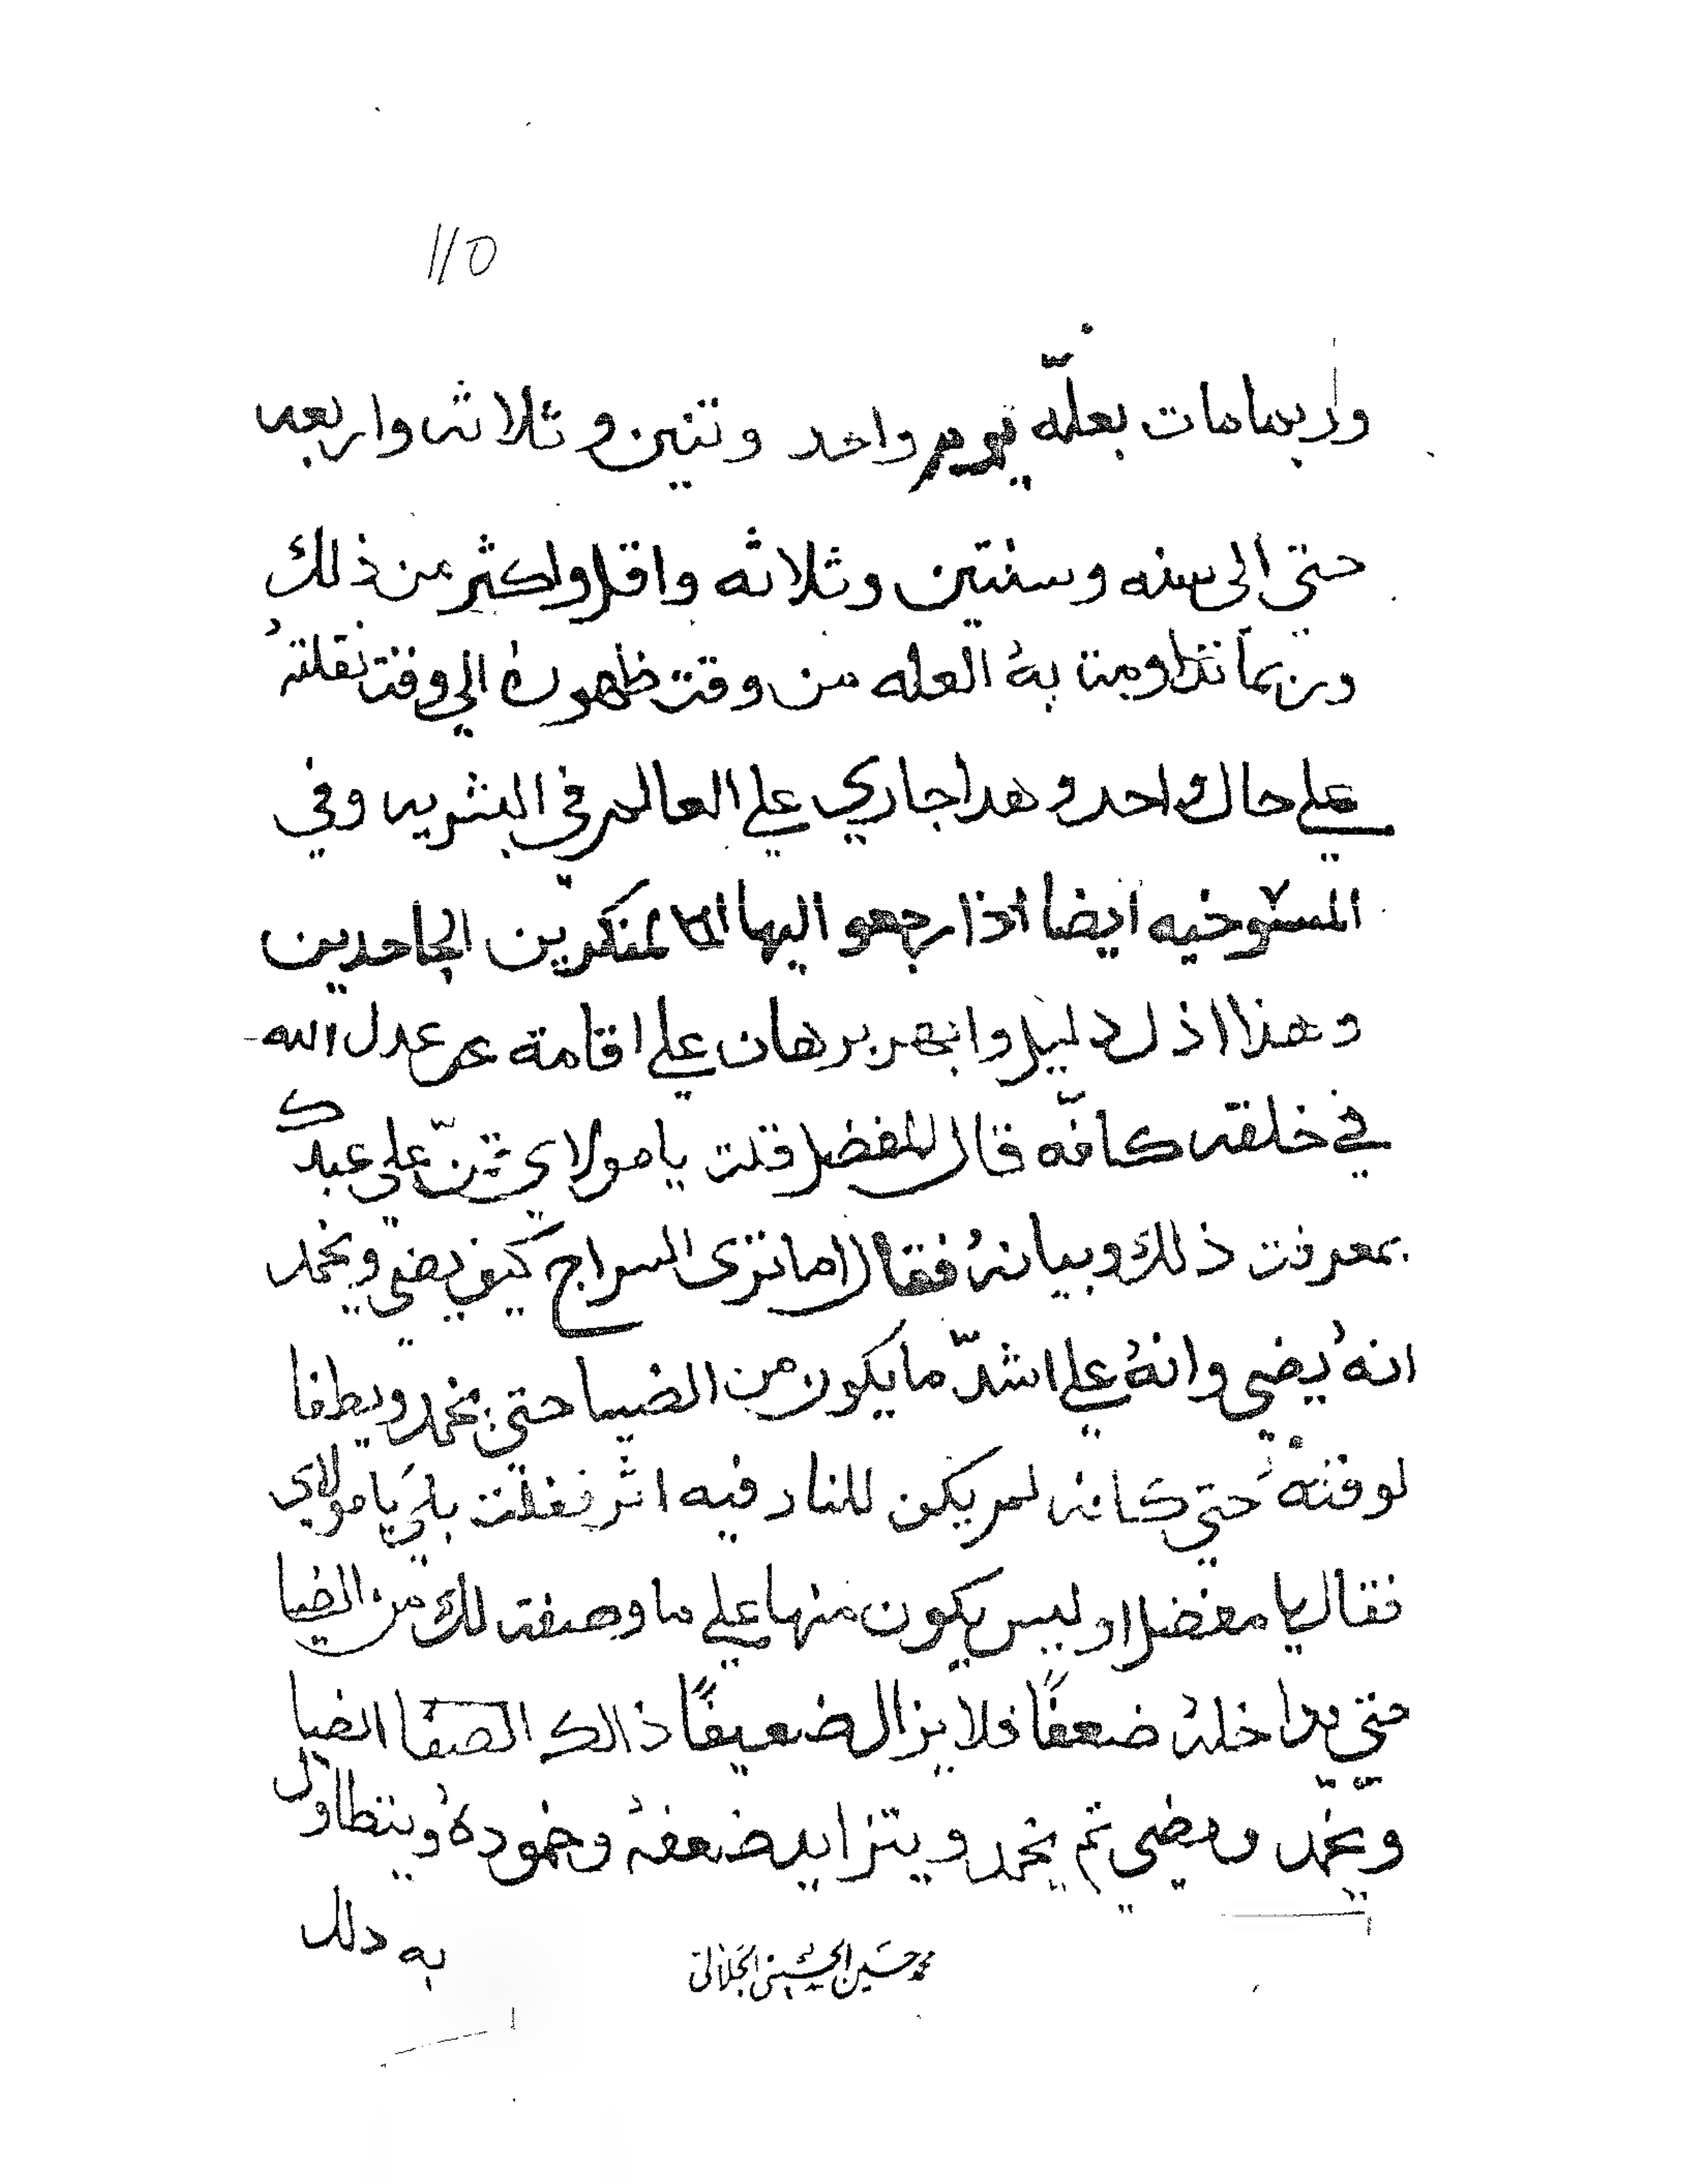 ١١٥
وربما مات بعلّه يوم واحد وتنين وثلاثه واربعه
حتي الى سنه وسنتين وثلاثه واقل واكثر من ذلك
وربما تداومت به العله من وقت ظهوره الي وقت نقلته
علي حال واحد وهدا جاري علي العالم في البشريه وفي
المسوخيه ايضا اذا رجعو اليها المنكرين الجاحدين
وهذا اذل دليل وابهر برهان علي اقامة عدل الله
في خلقه كافّه قال المفضل قلت يا مولاي منّ علي عبدك
بمعرفت ذلك وبيانه فقال اما ترى السراج كيف يضي ويخمد
انهُ يضي وانهُ علي اشدّ ما يكون من الضيا حتي يخمد ويطفا
لوقته حتي كانه لم يكن للنار فيه اثر فقلت بلي يا مولاي
فقال يا مفضل او ليس يكون منها علي ما وصفته لك من الضيا
حتي يداخله ضعفًا فلا يزال ضعيفًا ذالك الصفا الضيا
ويخمد ويضي ثم يخمد ويتزايد ضعفه وخمودهُ ويتطاول
به دلك
محمد حسين الحسيني الجلالي